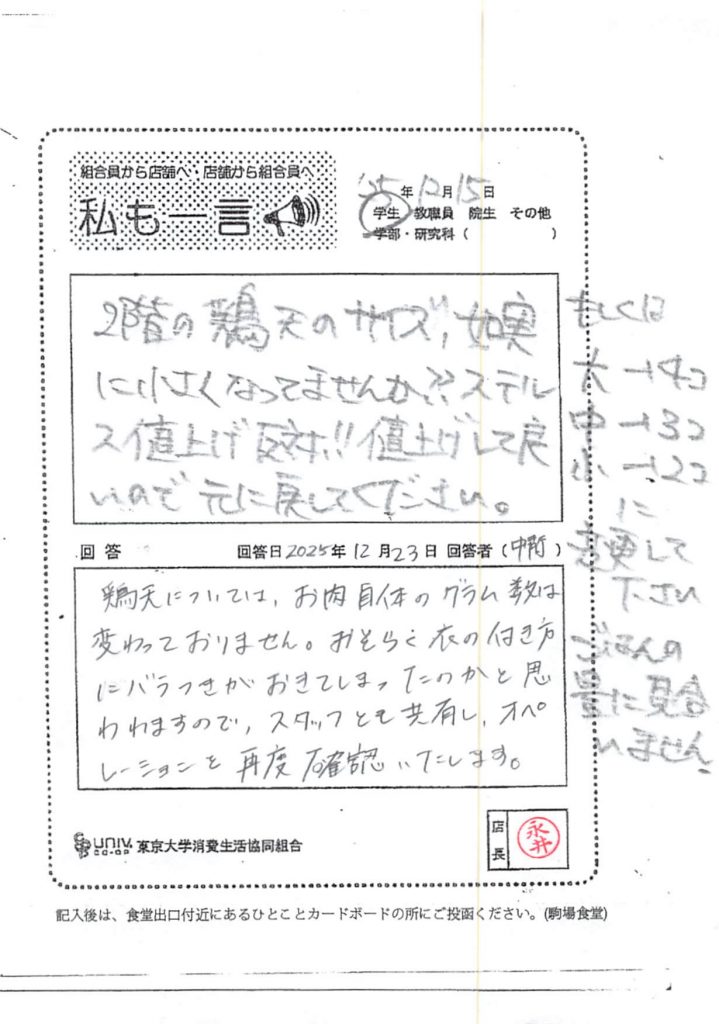 組合員から店舗へ・店舗から組合員へ
私も一言
'25年12月15日
学生 教職員 院生 その他
学部・研究科（ ）
2階の鶏天のサイズ、如実
に小さくなってませんか??ステル
ス値上げ反対!!値上げして良
いので元に戻してください。
もしくは
大→4コ
中→3コ
小→2コ
に
変更して
下さい
ごはんの
量に見合
いません.
回答 回答日2025年12月23日 回答者（ ）
鶏天については、お肉自体のグラム数は
変わっておりません。おそらく衣の付き方
にバラつきがおきてしまったのかと思
われますので、スタッフとも共有し、オペ
レーションを再度確認いたします。
UNIV. CO-OP 東京大学消費生活協同組合
店長
永井
記入後は、食堂出口付近にあるひとことカードボードの所にご投函ください。(駒場食堂)